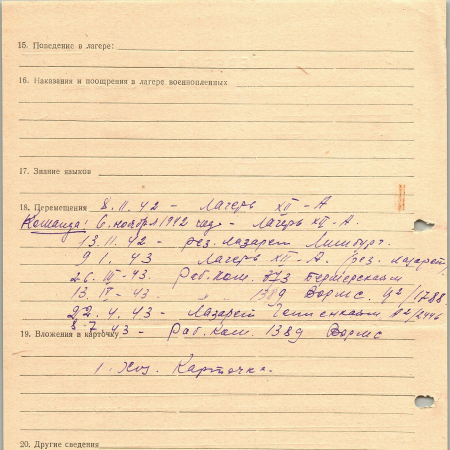 15. Поведение в лагере:
16. Наказания и поощрения в лагере военнопленных
17. Знание языков
18. Перемещения 8.11.42 – Лагерь XII-А
Команда: 6 ноября 1942 года – Лагерь XII-А.
13.11.42 – рез. лазарет Лимбург.
9 1. 43 Лагерь XII-А. /рез. лазарет/
26. III-43. Раб. ком. 873
13. IV-43 – " 1389 Вормс. /1788
22. 4. 43 – Лазарет /2446
8-7 43 – Раб. Ком. 1389 Вормс
19. Вложения в карточку
1. Хоз. Карточка.
20. Другие сведения